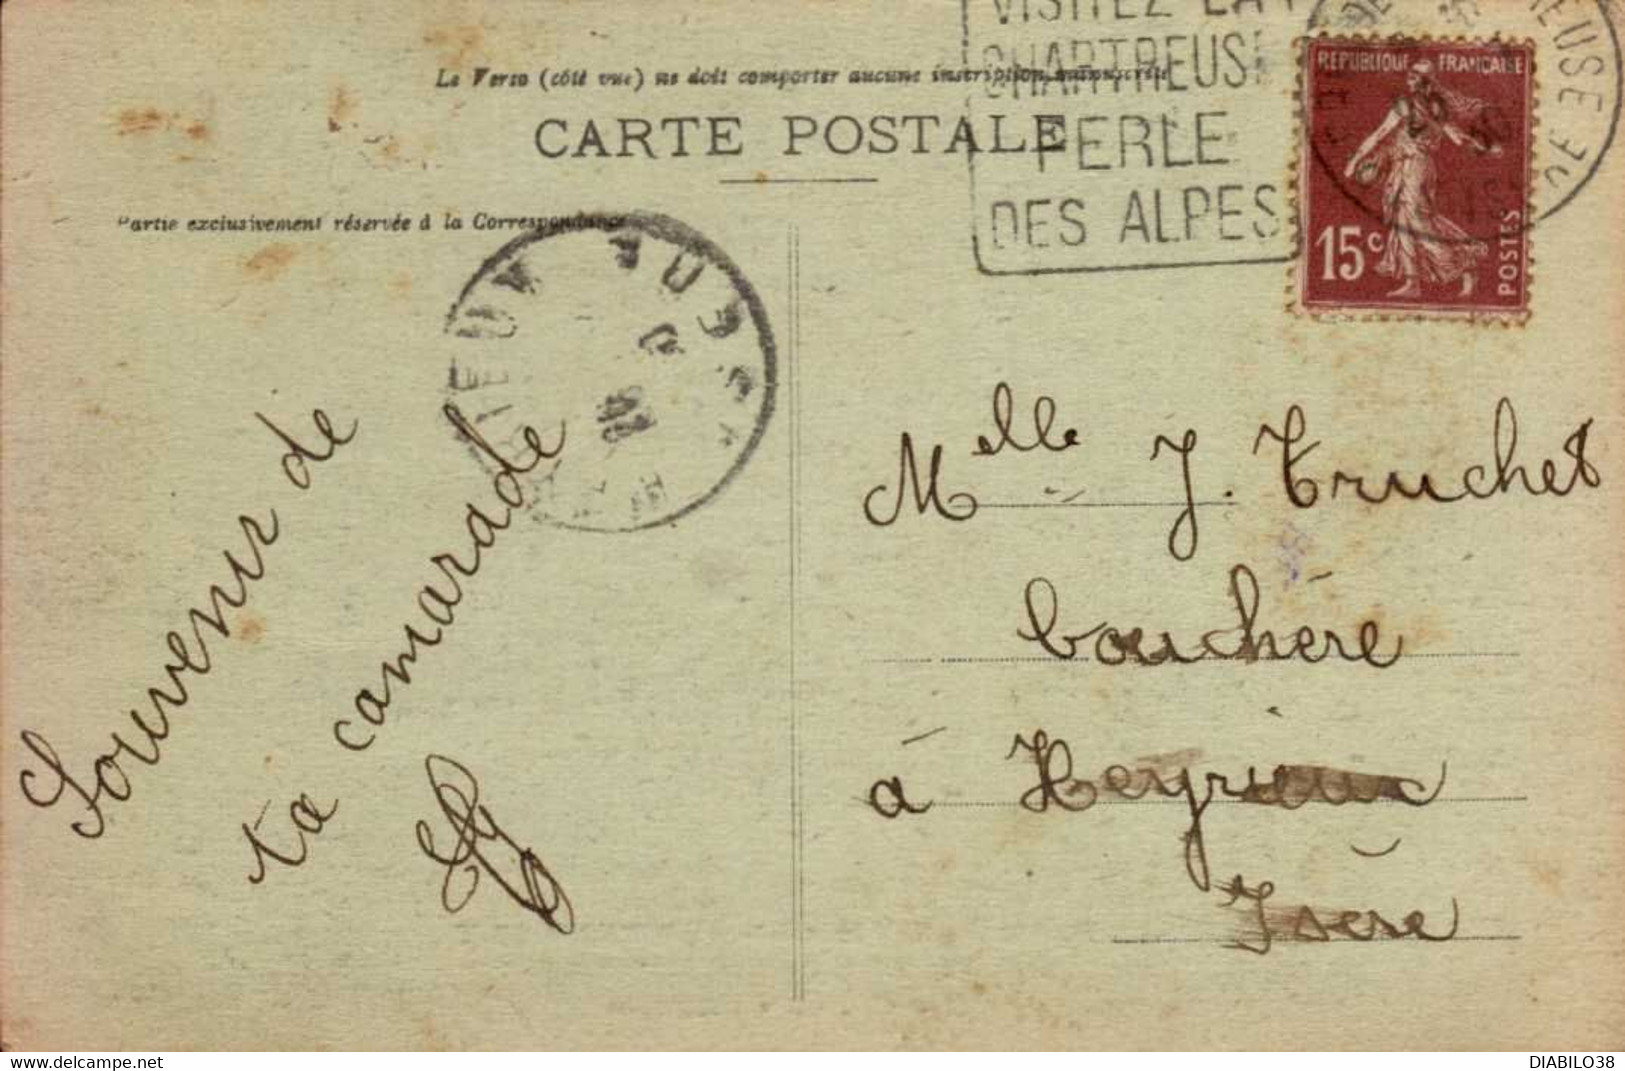 VISITEZ LA
CHARTREUSE
PERLE
DES ALPES
REPUBLIQUE FRANÇAISE
15c
POSTES
Le Verso (côté vue) ne doit comporter aucune inscription manuscrite
CARTE POSTALE
Partie exclusivement réservée à la Correspondance
Souvenir de
ta camarade
Melle J. Truchet
bouchère
à Heyrieux
Isère
DIABILO38